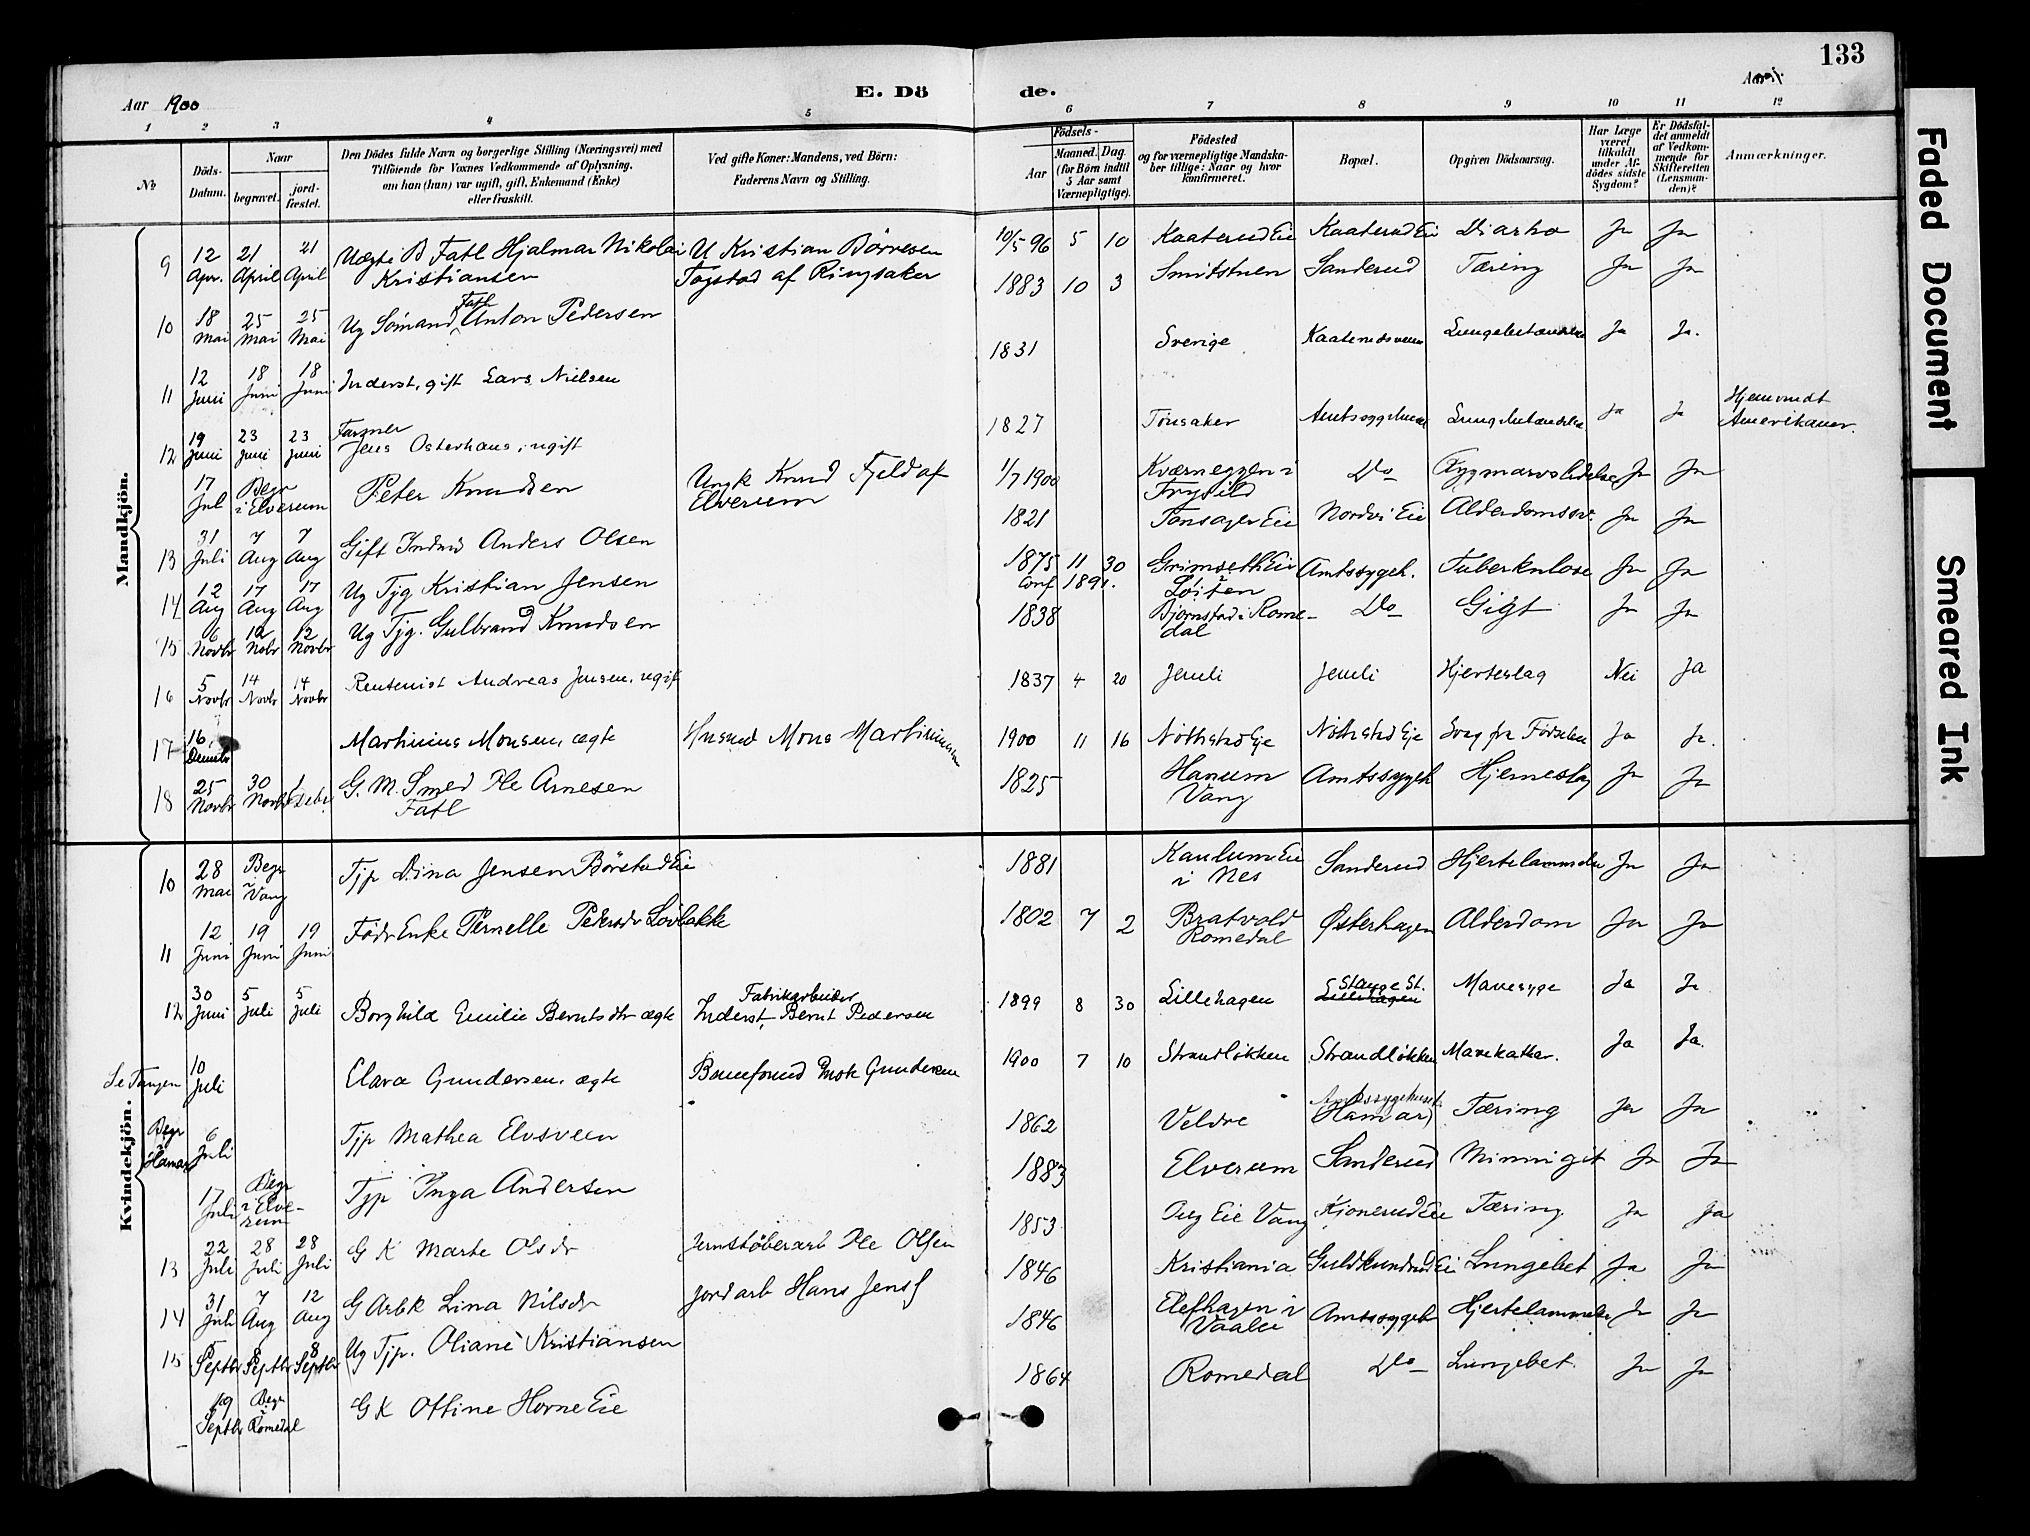 133
Aar 1900
E. Dö
de.
Aar
1 2 3 4 5 6 7 8 9 10 11 12
№
Döds-Datum.
Naar
begravet.
jord-fæstet.
Den Dödes fulde Navn og borgerlige Stilling (Næringsvei) med
Tilföiende for Voxnes Vedkommende af Oplysning,
om han (hun) var ugift, gift, Enkemand (Enke)
eller fraskilt.
Ved gifte Koner: Mandens, ved Börn:
Faderens Navn og Stilling.
Födsels-
Aar
Maaned. Dag.
(for Börn indtil
5 Aar samt
Værnepligtige).
Födested
og for værnepligtige Mandska-
ber tillige: Naar og hvor
konfirmeret.
Bopæl.
Opgiven Dödsaarsag.
Har Læge
været
tilkaldt
under Af-
dödes sidste
Sygdom?
Er Dödsfal-
det anmeldt
af Vedkom-
mende for
Skifteretten
(Lensman-
den)?
Anmærkninger.
Mandkjön.
9 12 Apr. 21 April 21 April Uægte B Fatl Hjalmar Nikolai Kristiansen U Kristian Börresen Togstad af Ringsaker 10/5 96 5 10 Kaaterud Eie Kaaterud Eie Diarho Ja Ja
10 18 Mai 25 Mai 25 Mai Ug Sömand Fatl Anton Pedersen 1883 10 3 Smitstuen Sanderud Tæring Ja Ja
11 12 Juni 18 Juni 18 Juni Inderst, gift Lars Nielsen 1831 Sverige Kaaterudsveen Lungebetændelse Ja Ja.
12 19 Juni 23 Juni 23 Juni Farmer Jens Osterhaus, ugift 1827 Tönsaker Amtssygehuset Lungebetændelse Ja Ja Hjemvendt Amerikaner.
17 Jul Begr i Elverum Peter Knudsen Ungk Knud Fjeld af Elverum 1/7 1900 Kværneggen i Trysild Do Rygmarvslidelse Ja Ja
13 31 Juli 7 Aug 7 Aug Gift Indrd Anders Olsen 1821 Tonsager Eie Nordvi Eie Alderdomssv. Ja Ja
14 12 Aug 17 Aug 17 Aug Ug Tjg Kristian Jensen 1875 11 30 Conf 1891. Grimseth Eie i Löiten Amtssygeh. Tuberkulose Ja Ja
15 6 Novbr 12 Nobr 12 Novbr Ug Tjg. Gulbrand Knudsen 1838 Bjørnstad i Romedal Do Gigt Ja Ja
16 5 Novbr 14 Novbr 14 Novbr Rentenist Andreas Jensen, ugift 1837 4 20 Jemli Jemli Hjerteslag Nei Ja
17 16. Decembr Martinius Monsen, ægte Husmd Mons Martinussen 1900 11 16 Nöthstad Eje Nöthstad Eje Svag fra Födselen Ja Ja.
18 25 Novbr 30 Novbr 1 Debr G. M. Smed Ole Arnesen Fatl 1825 Hanum Vang Amtssygeh Hjerneslag Ja Ja
Kvindekjön.
10 28 Mai Begr i Vang Tjp Dina Jensen Börstad Eie 1881 Kaulum Eie i Nes Sanderud Hjertelammelse Ja Ja
11 12 Juni 19 Juni 19 Juni Födr Enke Pernelle Pedersdr Lövbakke 1802 7 2 Bratvold Romedal Østerhagen Alderdom Ja Ja
12 30 Juni 5 Juli 5 Juli Borghild Emilie Berntsdtr ægte Fabrikarbeider Inderst, Bernt Pedersen 1899 8 30 Lillehagen Stange St. Lillehagen Mavesyge Ja Ja
Se Tangen 10 Juli Clara Gundersen, ægte Baneformd Gundersen 1900 7 10 Strandlökken Strandlökken Mavekathar. Ja Ja.
Begr Hamar 6 Juli Tjp Mathea Elvsveen 1862 Veldre Amtssygehuset Hamar) Tæring Ja Ja
17 Juli Begr i Elverum Tjp Inga Andersen 1883 Elverum Sanderud Ja Ja
13 22 Juli 28 Juli 28 Juli G K Marte Olsdr Jernstöberarb Ole Olsen 1853 Eie Vang Kjonerud Eie Tæring Ja Ja
14 31 Juli 7 Aug 12 Aug G Arbk Lina Nilsdr Jordarb Hans Jens 1846 Kristiania Guldkundrud Ei Lungebet Ja Ja
15 5 Septbr 8 Septbr 8 Septbr Ug Tjp. Oliane Kristiansen 1846 Elefhagen i Vaaler Amtssygeh Hjertelammelse Ja Ja
19 Septbr Begr i Romedal G K Ottine Horne Eie 1864 Romedal Do Lungebet. Ja Ja
Faded Document
Smeared Ink